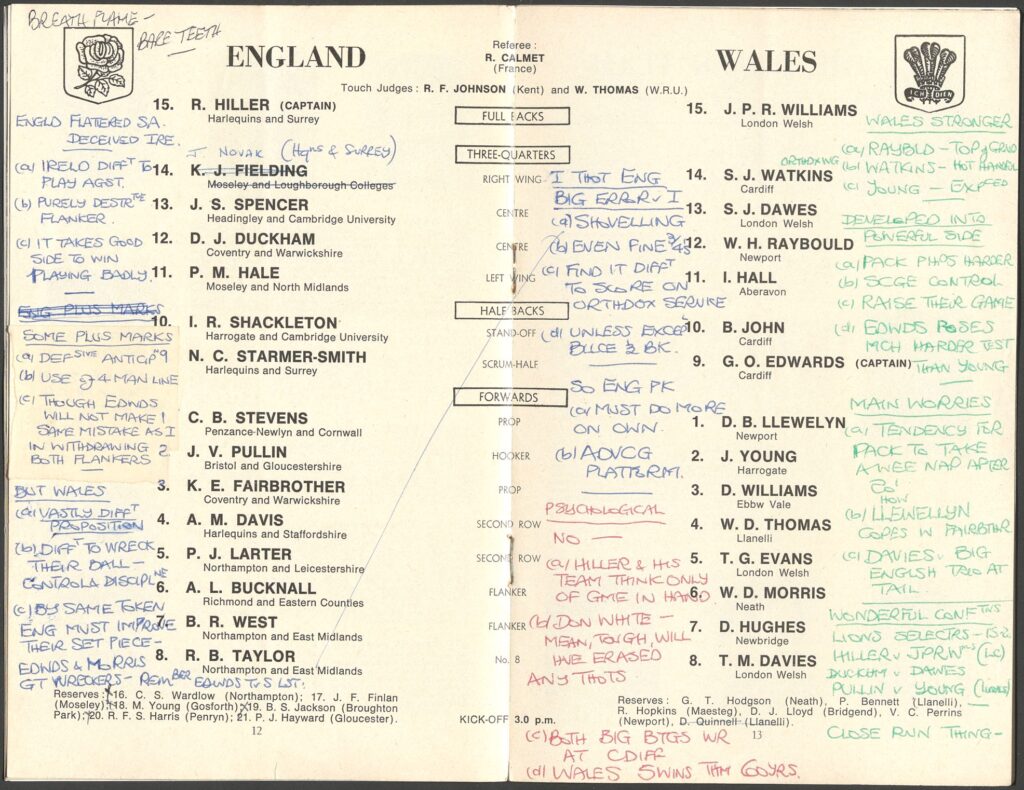 BREATH FLAME -
BARE TEETH
ENGLAND
Referee :
R. CALMET
(France)
WALES
ICH DIEN
Touch Judges : R. F. JOHNSON (Kent) and W. THOMAS (W.R.U.)
ENGLD FLATTERED S.A.
DECEIVED IRE.
(a) IRELD DIFFT TO
PLAY AGST.
(b) PURELY DESTRTVE
FLANKER.
(c) IT TAKES GOOD
SIDE TO WIN
PLAYING BADLY.
ENG PLUS MARKS
SOME PLUS MARKS
(a) DEFSIVE ANTICIP 9
(b) USE of 4 MAN LINE
(c) THOUGH EDWDS
WILL NOT MAKE
SAME MISTAKE AS I
IN WITHDRAWING
BOTH FLANKERS
BUT WALES
(a) VASTLY DIFFT
PROPOSITION
(b) DIFFT TO WRECK
THEIR BALL -
CONTROL & DISCIPLNE
(c) BY SAME TOKEN
ENG MUST IMPROVE
THEIR SET PIECE -
EDWDS & MORRIS
GT WRECKERS - REMBER EDWDS TVS LST.
15. R. HILLER (CAPTAIN)
Harlequins and Surrey
J NOVAK (Hqns & SURREY)
14. K. J. FIELDING
Moseley and Loughborough Colleges
13. J. S. SPENCER
Headingley and Cambridge University
12. D. J. DUCKHAM
Coventry and Warwickshire
11. P. M. HALE
Moseley and North Midlands
10. I. R. SHACKLETON
Harrogate and Cambridge University
N. C. STARMER-SMITH
Harlequins and Surrey
C. B. STEVENS
Penzance-Newlyn and Cornwall
2. J. V. PULLIN
Bristol and Gloucestershire
3. K. E. FAIRBROTHER
Coventry and Warwickshire
4. A. M. DAVIS
Harlequins and Staffordshire
5. P. J. LARTER
Northampton and Leicestershire
6. A. L. BUCKNALL
Richmond and Eastern Counties
7. B. R. WEST
Northampton and East Midlands
8. R. B. TAYLOR
Northampton and East Midlands
Reserves : 16. C. S. Wardlow (Northampton); 17. J. F. Finlan
(Moseley); 18. M. Young (Gosforth); 19. B. S. Jackson (Broughton
Park); 20. R. F. S. Harris (Penryn); 21. P. J. Hayward (Gloucester).
12
FULL BACKS
THREE-QUARTERS
RIGHT WING
CENTRE
CENTRE
LEFT WING
HALF BACKS
STAND-OFF
SCRUM-HALF
FORWARDS
PROP
HOOKER
PROP
SECOND ROW
SECOND ROW
FLANKER
FLANKER
No. 8
KICK-OFF 3.0 p.m.
I THOT ENG
BIG ERROR v I
(a) SHOVELLING
(b) EVEN FINE 3/4S
(c) FIND IT DIFFT
TO SCORE ON
ORTHODOX SERVICE
(d) UNLESS EXCEP
BLCE 1/2 BK.
SO ENG PK
(a) MUST DO MORE
ON OWN.
(b) ADVCG
PLATFORM.
PSYCHOLOGICAL
NO -
(a) HILLER & HIS
TEAM THINK ONLY
OF GME IN HAND
(b) DON WHITE -
MEAN, TOUGH, WILL
HVE ERASED
ANY THOTS
(c) BOTH BIG BTGS WR
AT CDIFF
(d) WALES 5 WINS TWM 60 YRS.
15. J. P. R. WILLIAMS
London Welsh
14. S. J. WATKINS
Cardiff
13. S. J. DAWES
London Welsh
12. W. H. RAYBOULD
Newport
11. I. HALL
Aberavon
10. B. JOHN
Cardiff
9. G. O. EDWARDS (CAPTAIN)
Cardiff
1. D. B. LLEWELYN
Newport
2. J. YOUNG
Harrogate
3. D. WILLIAMS
Ebbw Vale
4. W. D. THOMAS
Llanelli
5. T. G. EVANS
London Welsh
6. W. D. MORRIS
Neath
7. D. HUGHES
Newbridge
8. T. M. DAVIES
London Welsh
Reserves : G. T. Hodgson (Neath), P. Bennett (Llanelli),
R. Hopkins (Maesteg), D. J. Lloyd (Bridgend), V. C. Perrins
(Newport), D. Quinnell (Llanelli).
13
WALES STRONGER
(a) RAYBLD - TOP of GRND
(b) WATKINS - HOT HARDER
(c) YOUNG -
DEVELOPED INTO
POWERFUL SIDE
(a) PACK PHPS HARDER
(b) SCGE CONTROL
(c) RAISE THEIR GAME
(d) EDWDS POSES
MCH HARDER TEST
THAN YOUNG
MAIN WORRIES
(a) TENDENCY FOR
PACK TO TAKE
A WEE NAP AFTER
HOW
(b) LLEWELLYN
COPES W FAIRBTHR
(c) DAVIES v BIG
ENGLSH TRIO AT
TAIL.
WONDERFUL CONFTNS
LIONS SELECTRS -
HILLER v JPRW
DUCKHM v DAWES
PULLIN v YOUNG
CLOSE RUN THING -